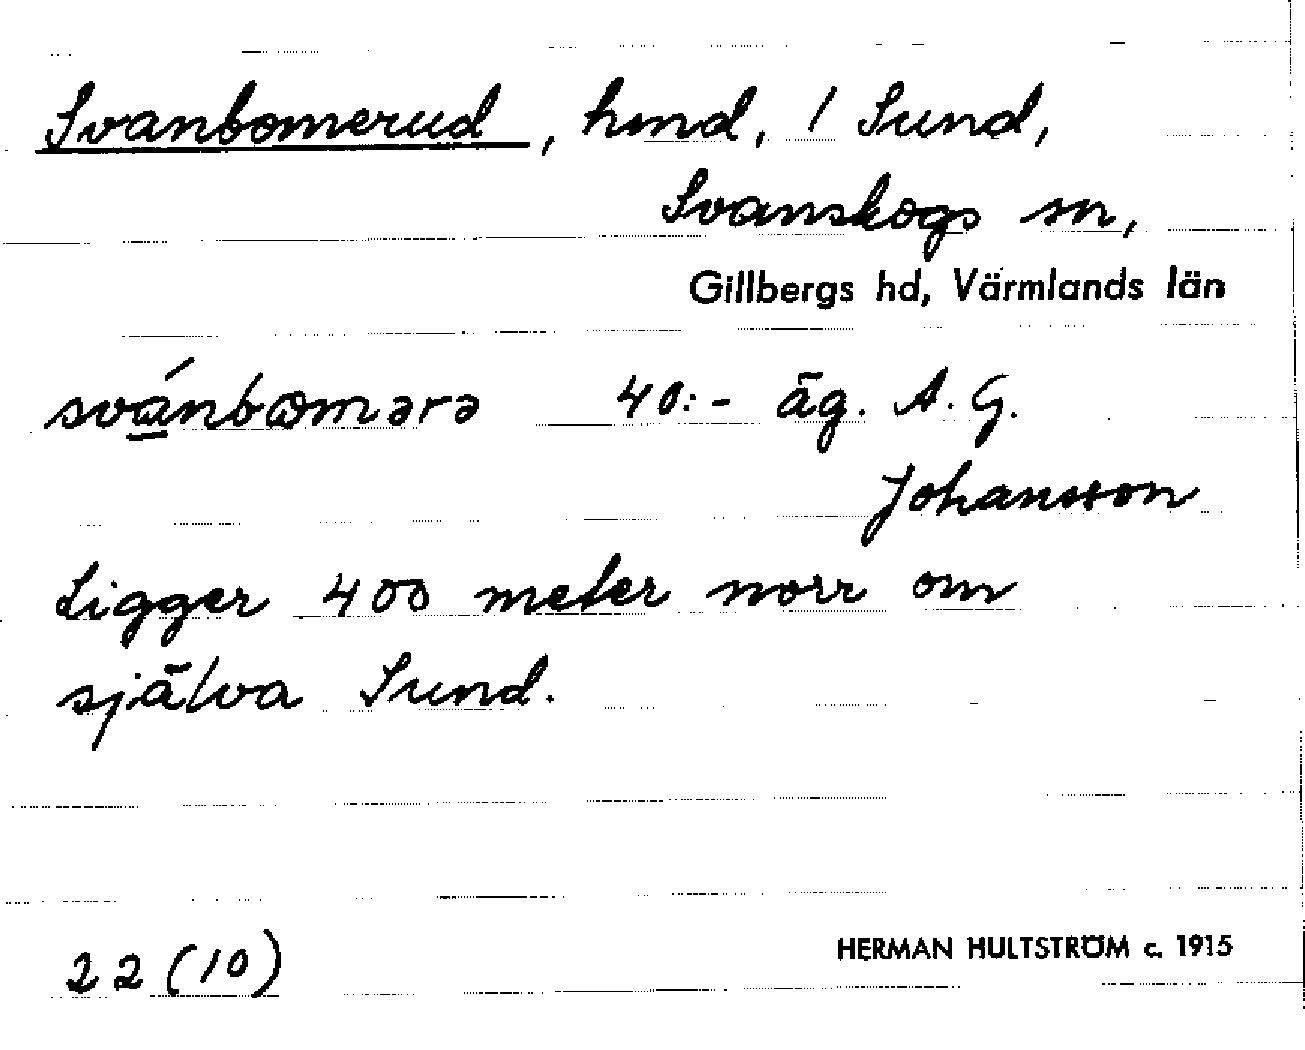 Svanbomerud, hmd, 1 Sund,
Svanskogs sn,
Gillbergs hd, Värmlands län
svánbɷmərə 40:- äg. A. G.
Johansson
Ligger 400 meter norr om
själva Sund.
22 (10)
HERMAN HULTSTRÖM c. 1915